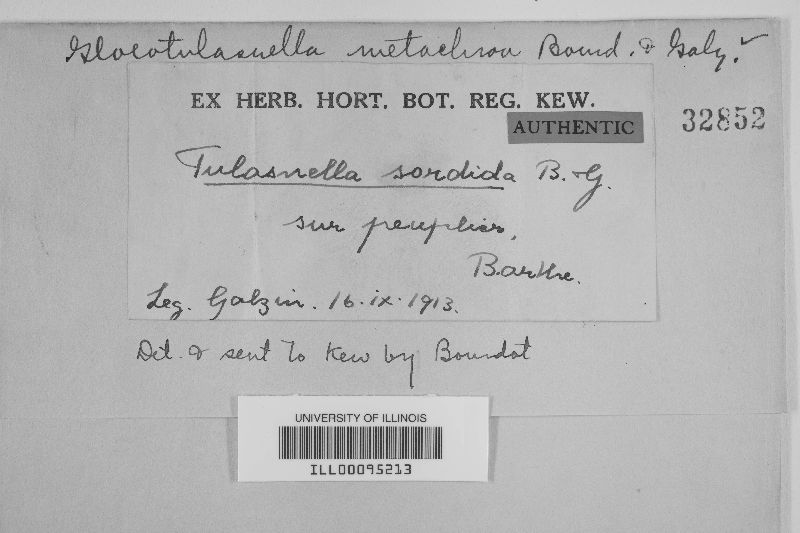 Gloeotulasnella metachroa Bourd. & Galz. ✓
EX HERB. HORT. BOT. REG. KEW.
AUTHENTIC
32852
Tulasnella sordida B. & G.
sur peuplier,
Barthe.
Leg. Galzin. 16.ix.1913.
Det. & sent to Kew by Bourdot
UNIVERSITY OF ILLINOIS
ILL00095213